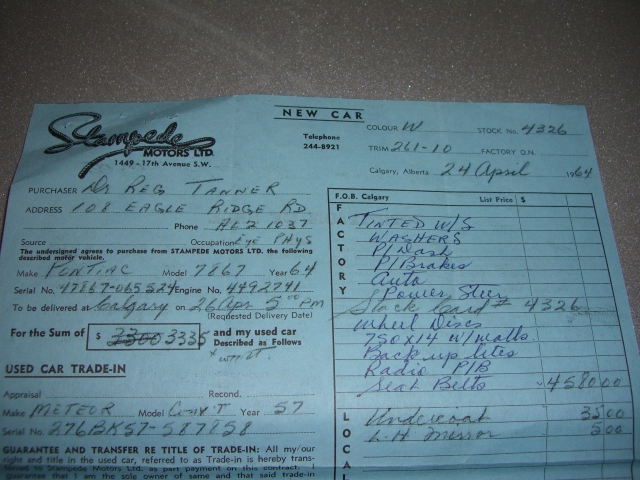 NEW CAR
Stampede
MOTORS LTD.
1449 - 17th Avenue S.W.
Telephone
244-8921
COLOUR W STOCK No. 4326
TRIM 261-10 FACTORY O.N.
Calgary, Alberta 24 April 1964
PURCHASER Dr REG TANNER
ADDRESS 108 EAGLE RIDGE RD
Phone AL2 1037
Source Occupation Eye PHYS
The undersigned agrees to purchase from STAMPEDE MOTORS LTD. the following
described motor vehicle.
Make PONTIAC Model 7867 Year 64
Serial No. 47867-065524 Engine No. 4492741
To be delivered at Calgary on 26 Apr 5 00 PM
(Requested Delivery Date)
For the Sum of $ 3300 3335 and my used car
Described as Follows
USED CAR TRADE-IN
Appraisal Recond.
Make METEOR Model Conv't Year 57
Serial No. 276BK57-587858
GUARANTEE AND TRANSFER RE TITLE OF TRADE-IN: All my/our
right and title in the used car, referred to as Trade-in is hereby trans-
ferred to Stampede Motors Ltd. as part payment on this contract. I
guarantee that I am the sole owner of same and that said trade-in
F.O.B. Calgary List Price $
FACTORY
TINTED W/S
WASHERS
P/Dash
P/Brakes
Auto
Power Steer
Stock Card # 4326
Wheel Discs
750X14 W/walls
Back up lites
Radio P/B
Seat Belts 4580 00
LOCAL
Undercoat 35 00
L.H. Mirror 5 00